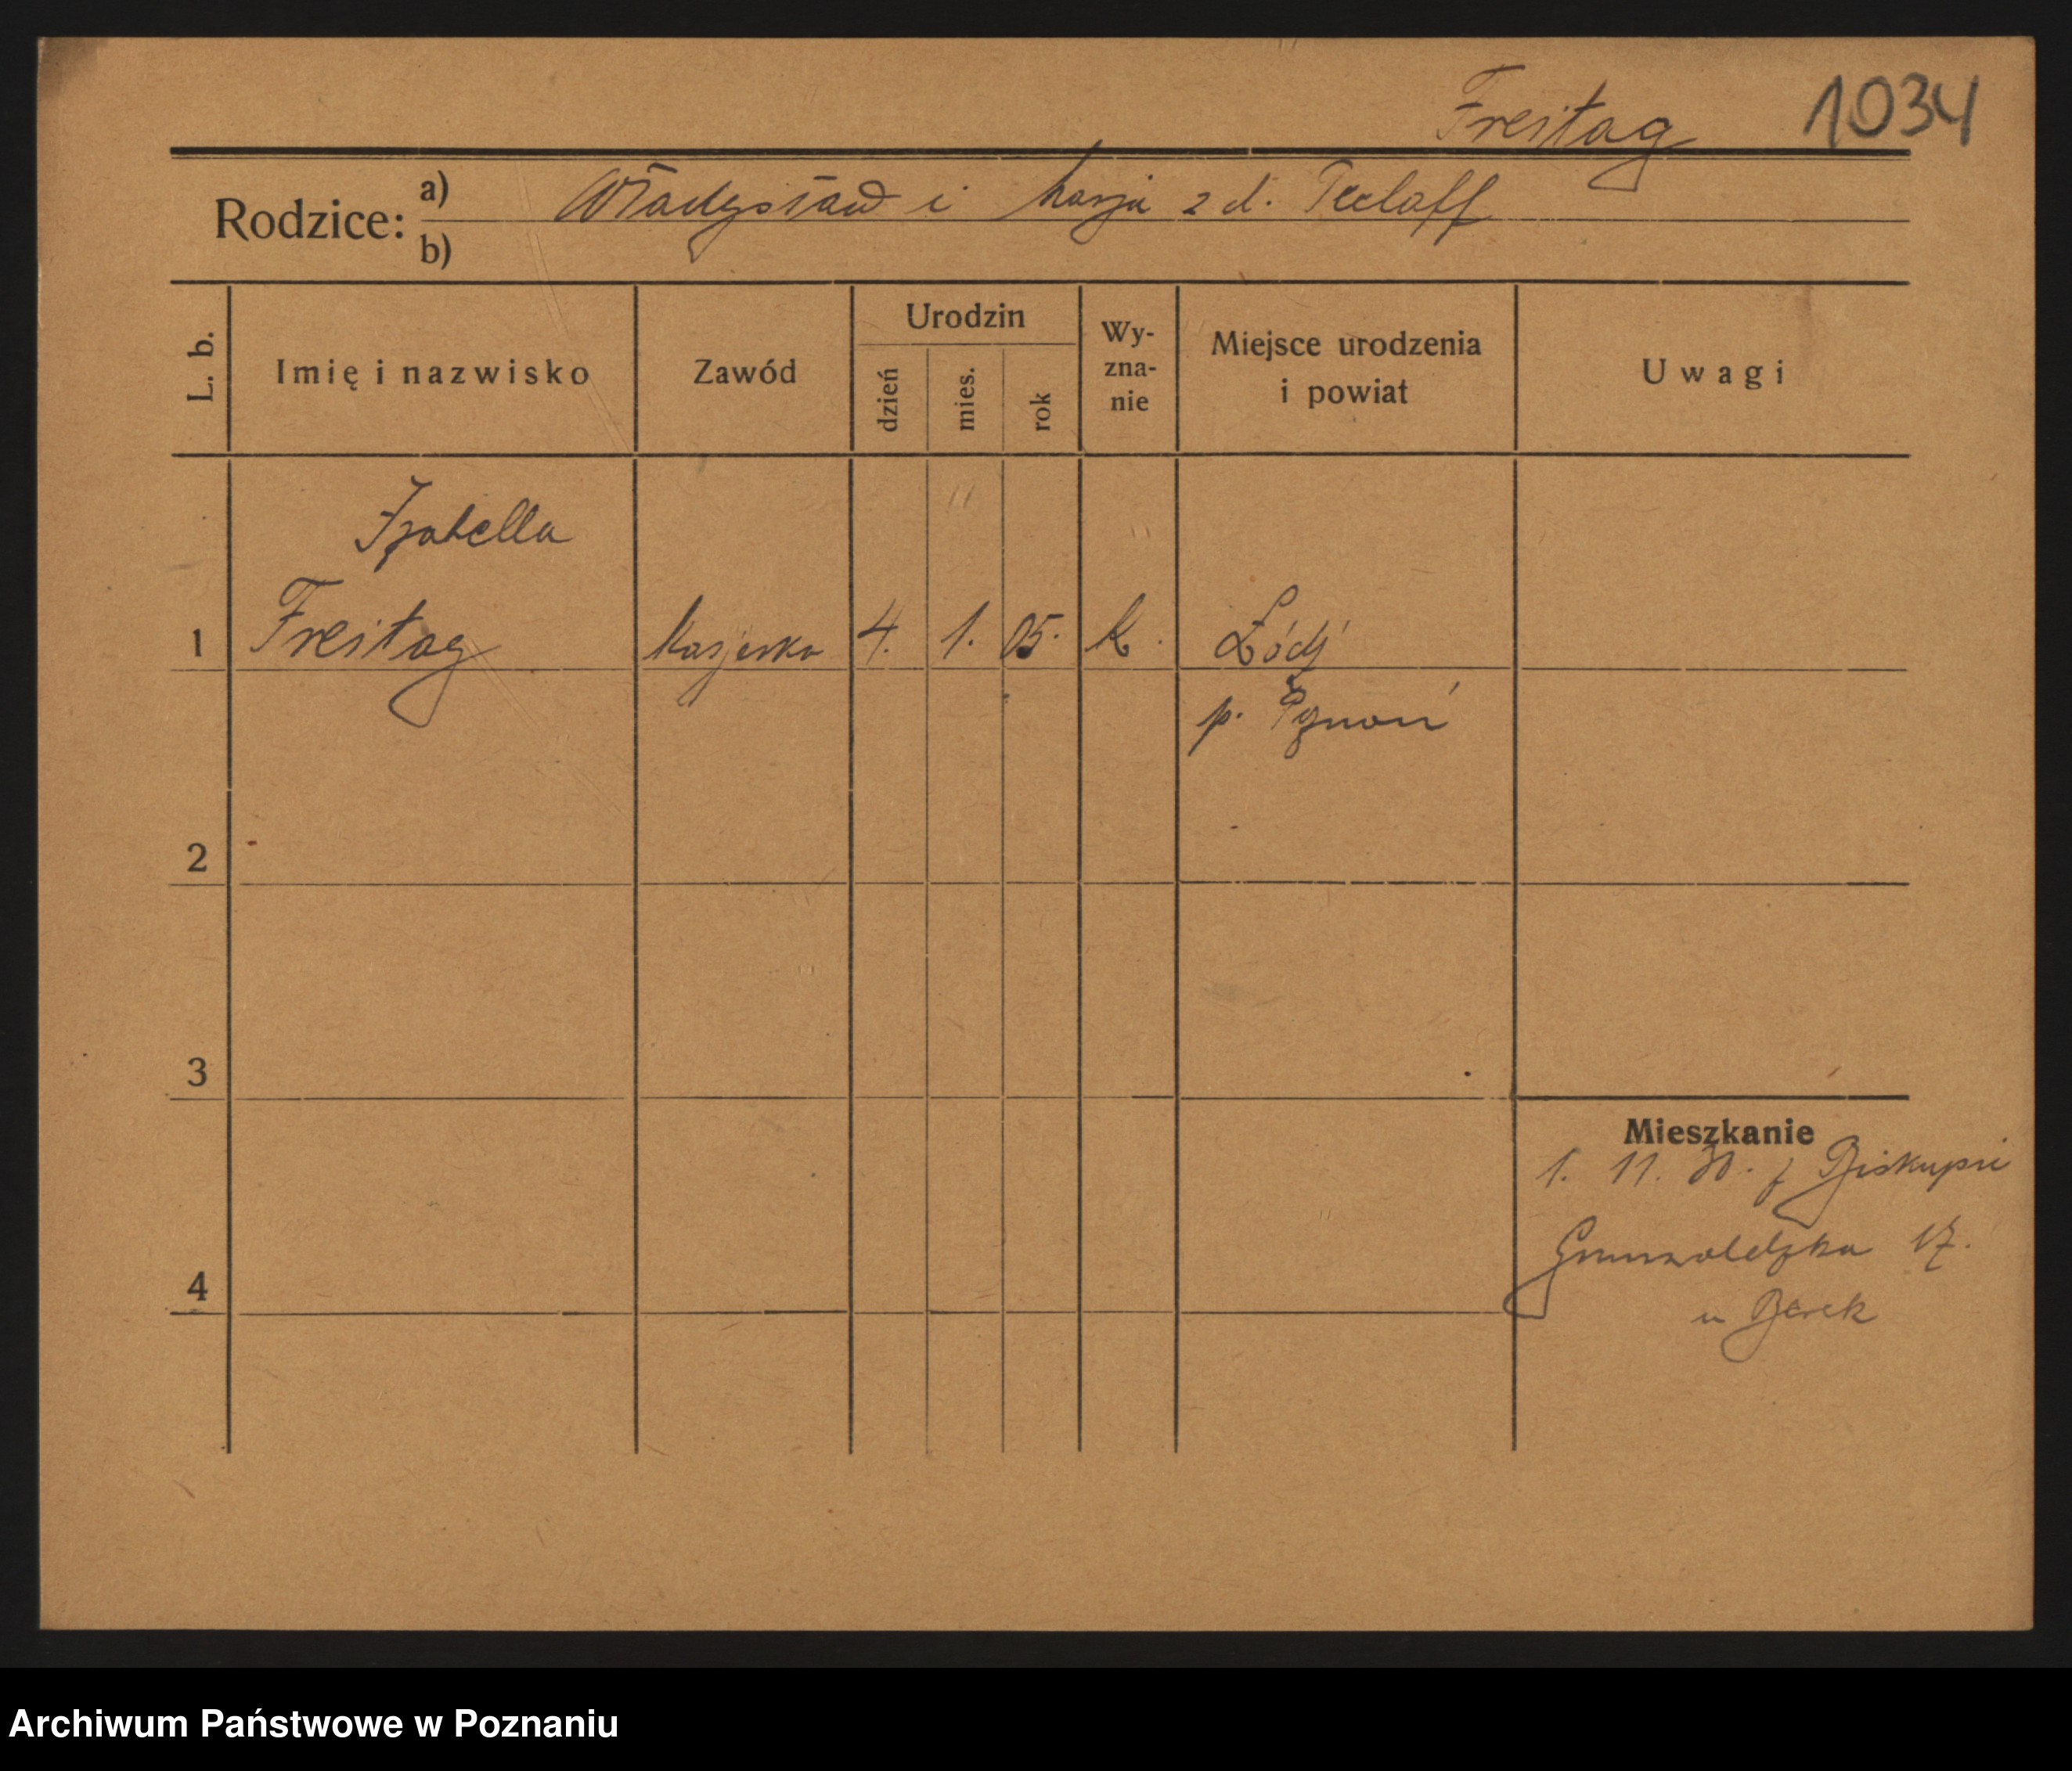 Freitag 1034
Rodzice: a) Władysław i Marja z d. Teclaff
b)
L. b. Imię i nazwisko Zawód Urodzin dzień mies. rok Wy-zna-nie Miejsce urodzenia i powiat Uwagi
Izabella
1 Freitag Kasjerka 4. 1. 05. k. Łódź
p. Poznań
2
3
Mieszkanie
1. 11. 30. z Biskupic
Grunwaldzka 17.
4
u Berek
Archiwum Państwowe w Poznaniu